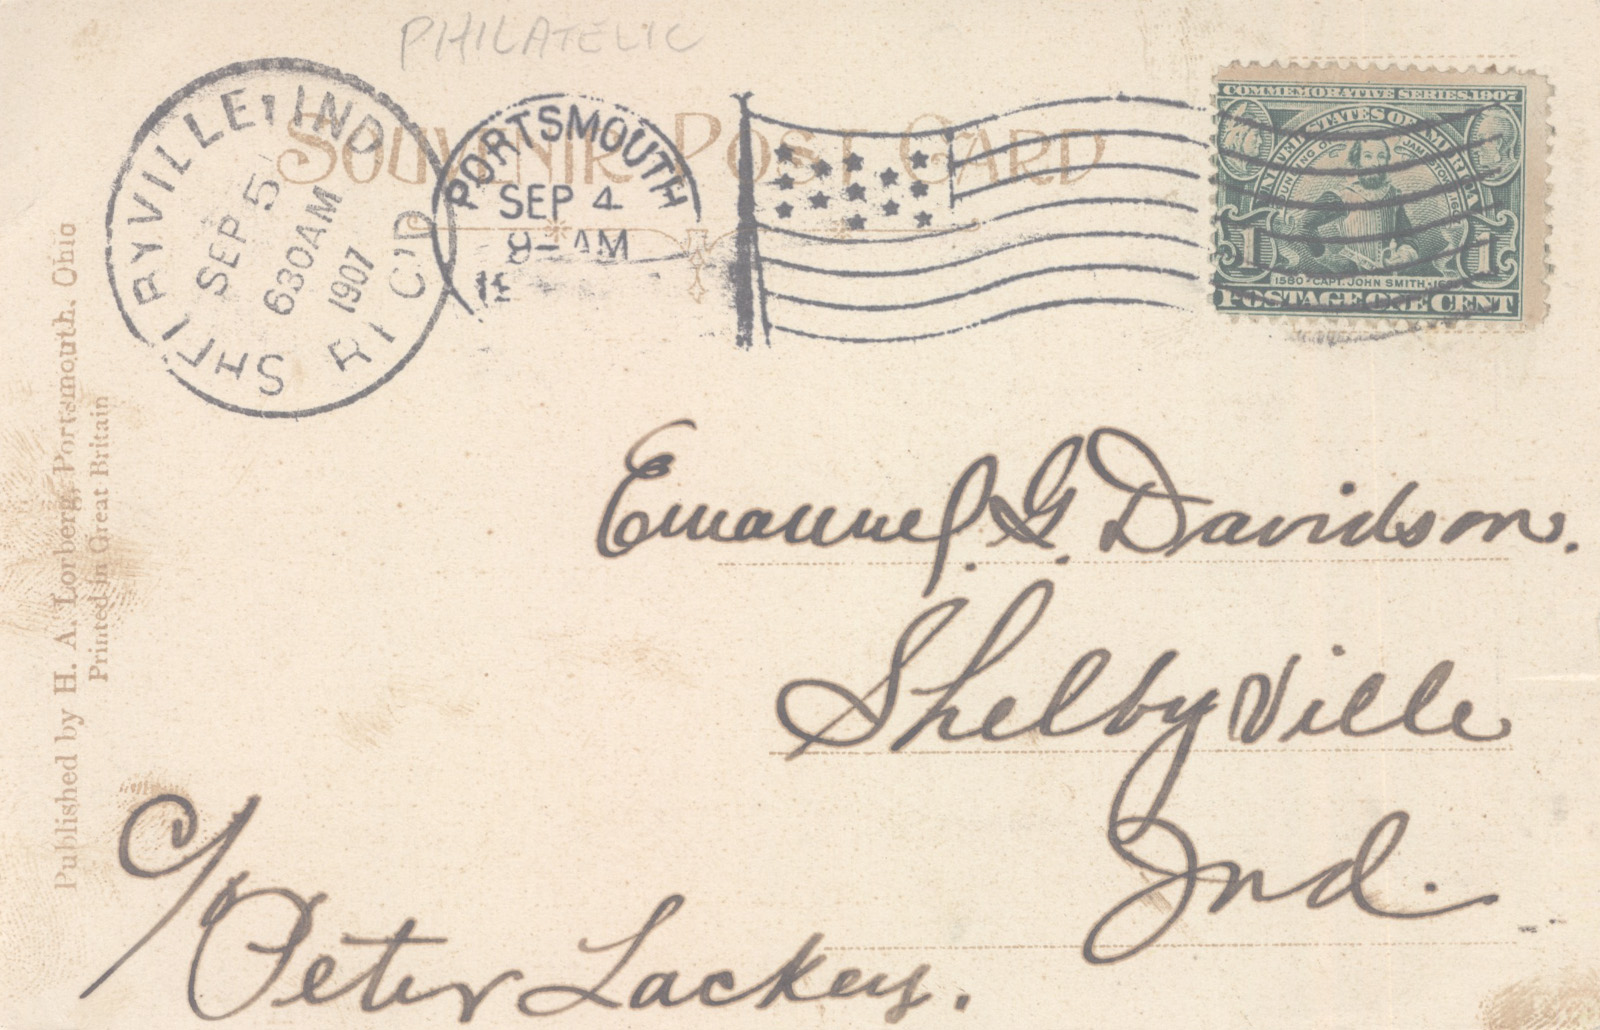 PHILATELIC
SOUVENIR POST CARD
SEP 5
630AM
1907
PORTSMOUTH
SEP 4
8-AM
COMMEMORATIVE SERIES, 1907
UNITED STATES OF AMERICA
1 1
1580 · CAPT. JOHN SMITH ·
POSTAGE ONE CENT
Emanuel. G. Davidson.
Shelbyville
Ind.
c/ Peter Lackey.
Published by H. A. Lorberg, Portsmouth, Ohio
Printed in Great Britain